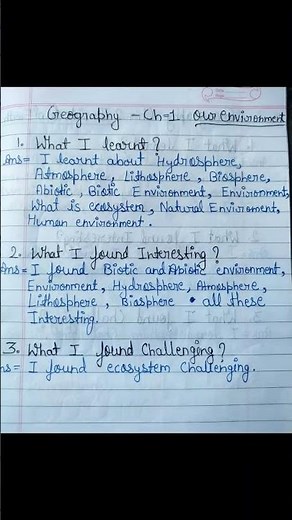 Geography - Ch-1 our environment
1. What I learnt?
Ans= I learnt about Hydrosphere,
Atmosphere, Lithosphere, Biosphere,
Abiotic, Biotic Environment, Environment,
What is ecosystem, Natural Enviroment,
Human environment.
2. What I found Interesting?
Ans= I found Biotic and Abiotic environment,
Environment, Hydrosphere, Atmosphere,
Lithosphere, Biosphere • all these
Interesting.
3. What I found Challenging?
ns= I found ecosystem Challenging.